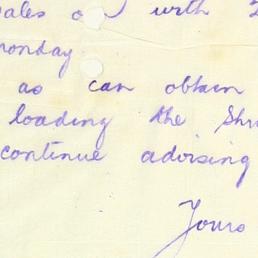 ales on with
onday
as can obtain
loading the Shr
continue advising
Yours